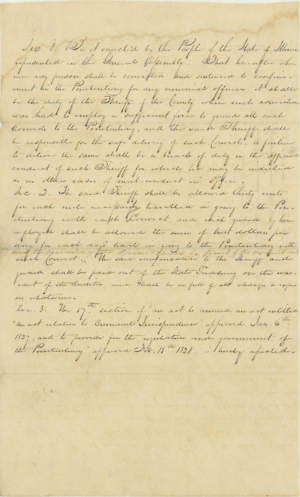 Sec. 1. Be it enacted by the People of the State of Illinois
represented in the General Assembly. That hereafter when
ever any person shall be convicted and sentenced to confine-
ment in the Penitentiary for any criminal offence it shall
be the duty of the Sheriff of the County where such conviction
was had to employ a sufficient force to guard all such
Convicts to the Penitentiary, and the said Sheriff shall
be responsible for the safe delivery of such Convict, a failure
to deliver the same shall be a breach of duty in the official
conduct of such Sheriff for which he may be indicted
as in other cases of misconduct in office.
Sec. 2. The said Sheriff shall be allowed thirty cents
for each mile necessarily travelled in going to the Pen-
itentiary with each Convict, and each guard by him
employed shall be allowed the sum of two dollars per
day for each day's travel in going to the Penitentiary with
such Convict. The said compensation to the Sheriff and
guards shall be paid out of the State Treasury on the war-
rant of the Auditor and shall be in full of all charges
Sec. 3. The 17th section of an act to amend an act entitled
"an act relative to Criminal Jurisprudence" approved Jan. 6th
1827, and to provide for the regulation and government of
the Penitentiary" approved Feb. 15th 1831 is hereby repealed.